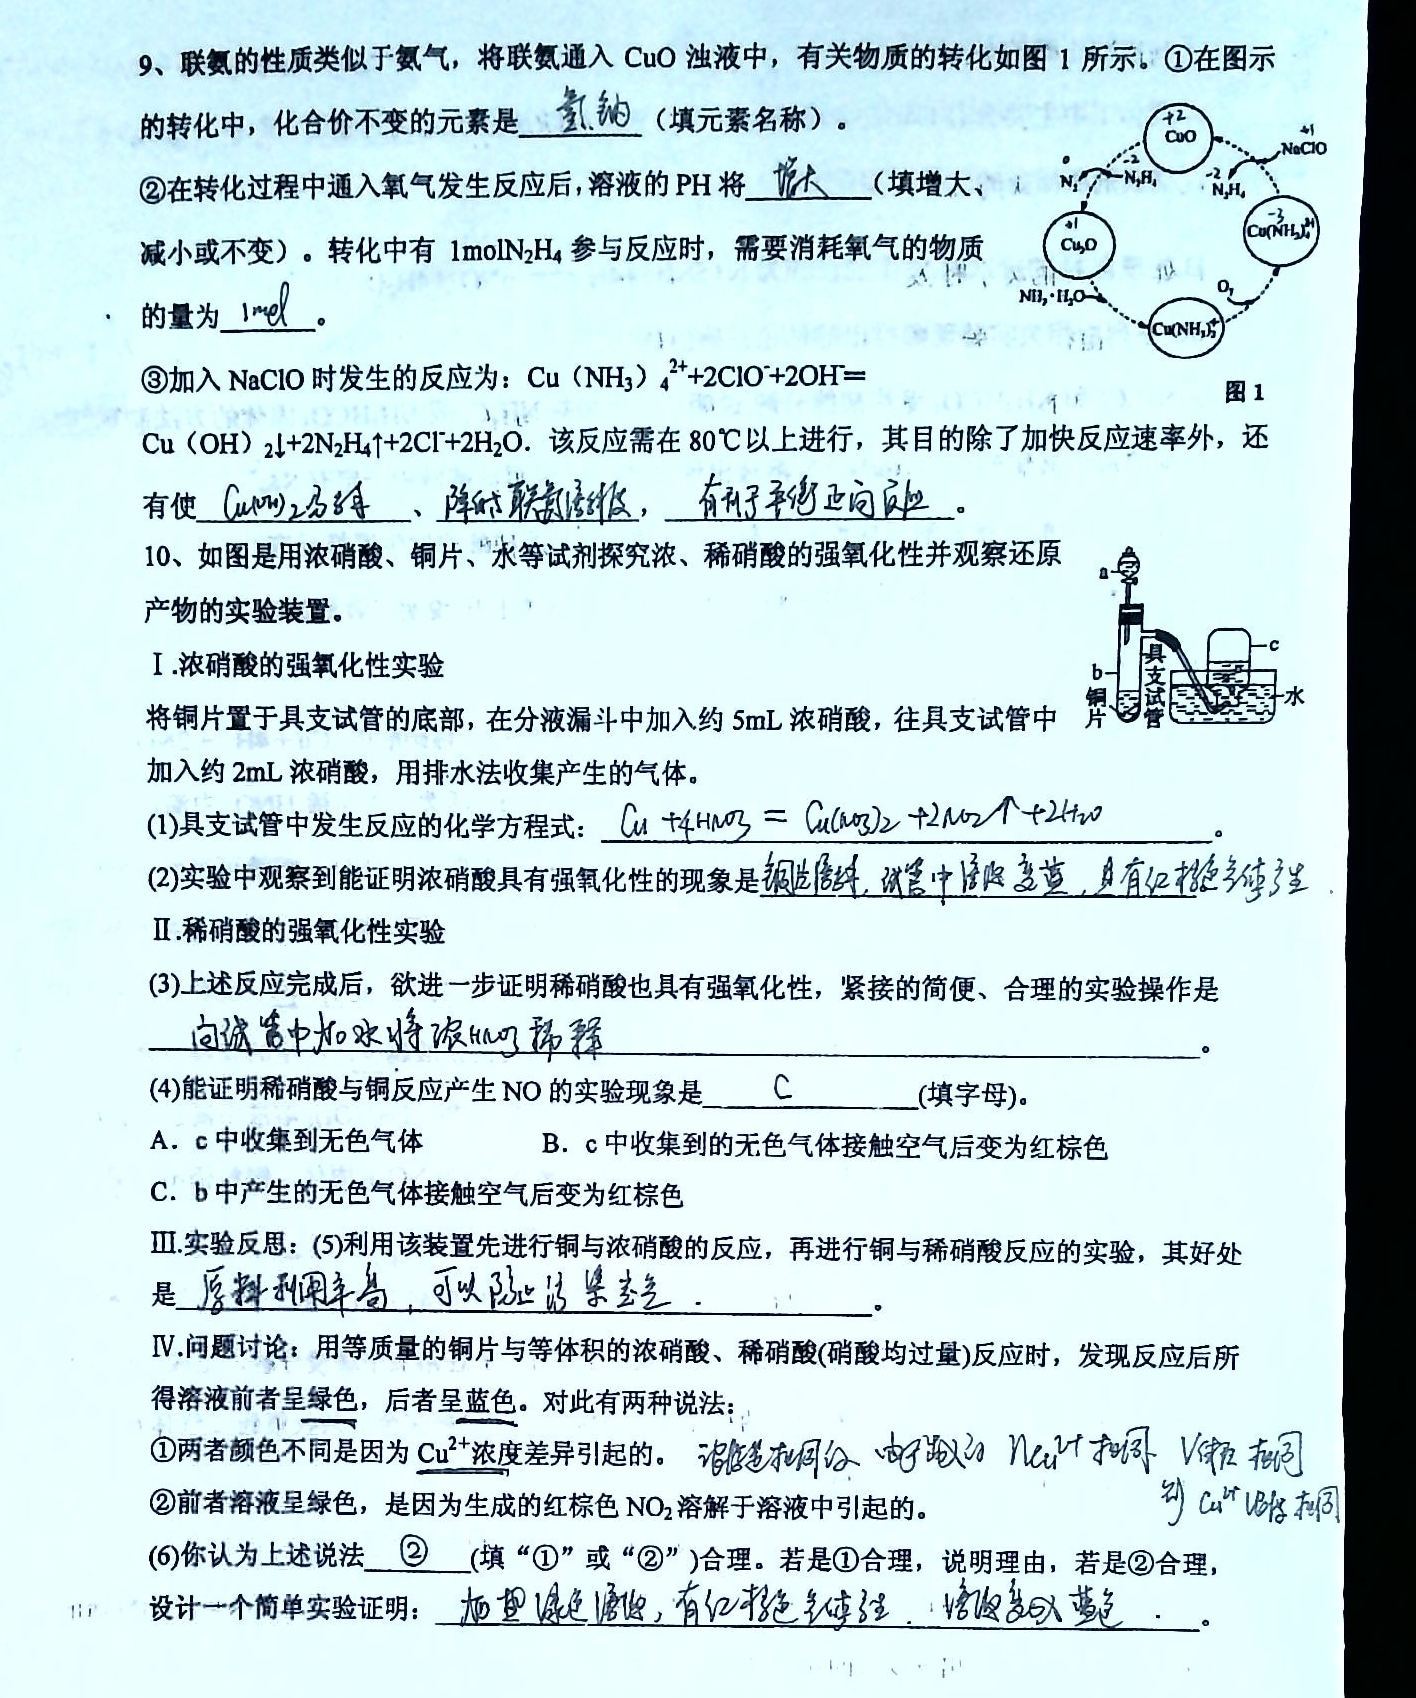 9、联氨的性质类似于氨气，将联氨通入 CuO 浊液中，有关物质的转化如图 1 所示。①在图示
的转化中，化合价不变的元素是 氢、钠 （填元素名称）。
②在转化过程中通入氧气发生反应后，溶液的 PH 将 增大 （填增大、
减小或不变）。转化中有 1molN₂H₄ 参与反应时，需要消耗氧气的物质
的量为 1mol 。
+2
CuO
+1
NaClO
0
N₂
-2
N₂H₄
-2
N₂H₄
+1
Cu₂O
-3
Cu(NH₃)₄²⁺
NH₃·H₂O
O₂
Cu(NH₃)₂⁺
图 1
③加入 NaClO 时发生的反应为：Cu（NH₃）₄²⁺+2ClO⁻+2OH⁻═
Cu（OH）₂↓+2N₂H₄↑+2Cl⁻+2H₂O．该反应需在 80℃以上进行，其目的除了加快反应速率外，还
有使 Cu(OH)₂ 、 降低联氨溶解度， 有利于平衡正向反应 。
10、如图是用浓硝酸、铜片、水等试剂探究浓、稀硝酸的强氧化性并观察还原
产物的实验装置。
a
b
c
铜片
具支试管
水
Ⅰ.浓硝酸的强氧化性实验
将铜片置于具支试管的底部，在分液漏斗中加入约 5mL 浓硝酸，往具支试管中
加入约 2mL 浓硝酸，用排水法收集产生的气体。
(1)具支试管中发生反应的化学方程式： Cu +4HNO₃ = Cu(NO₃)₂ +2NO₂↑+2H₂O 。
(2)实验中观察到能证明浓硝酸具有强氧化性的现象是 铜片溶解，试管中溶液变蓝，且有红棕色气体产生 .
Ⅱ.稀硝酸的强氧化性实验
(3)上述反应完成后，欲进一步证明稀硝酸也具有强氧化性，紧接的简便、合理的实验操作是
向试管中加水将浓HNO₃稀释 。
(4)能证明稀硝酸与铜反应产生 NO 的实验现象是 C (填字母)。
A．c 中收集到无色气体 B．c 中收集到的无色气体接触空气后变为红棕色
C．b 中产生的无色气体接触空气后变为红棕色
Ⅲ.实验反思：(5)利用该装置先进行铜与浓硝酸的反应，再进行铜与稀硝酸反应的实验，其好处
是 原料利用率高，可以防止污染空气 . 。
Ⅳ.问题讨论：用等质量的铜片与等体积的浓硝酸、稀硝酸(硝酸均过量)反应时，发现反应后所
得溶液前者呈绿色，后者呈蓝色。对此有两种说法：
①两者颜色不同是因为 Cu²⁺浓度差异引起的。 nCu²⁺相同 相同
②前者溶液呈绿色，是因为生成的红棕色 NO₂ 溶解于溶液中引起的。 则 Cu²⁺ 相同
(6)你认为上述说法 ② (填“①”或“②”)合理。若是①合理，说明理由，若是②合理，
设计一个简单实验证明： 加热绿色溶液，有红棕色气体产生，溶液变以蓝色 . 。